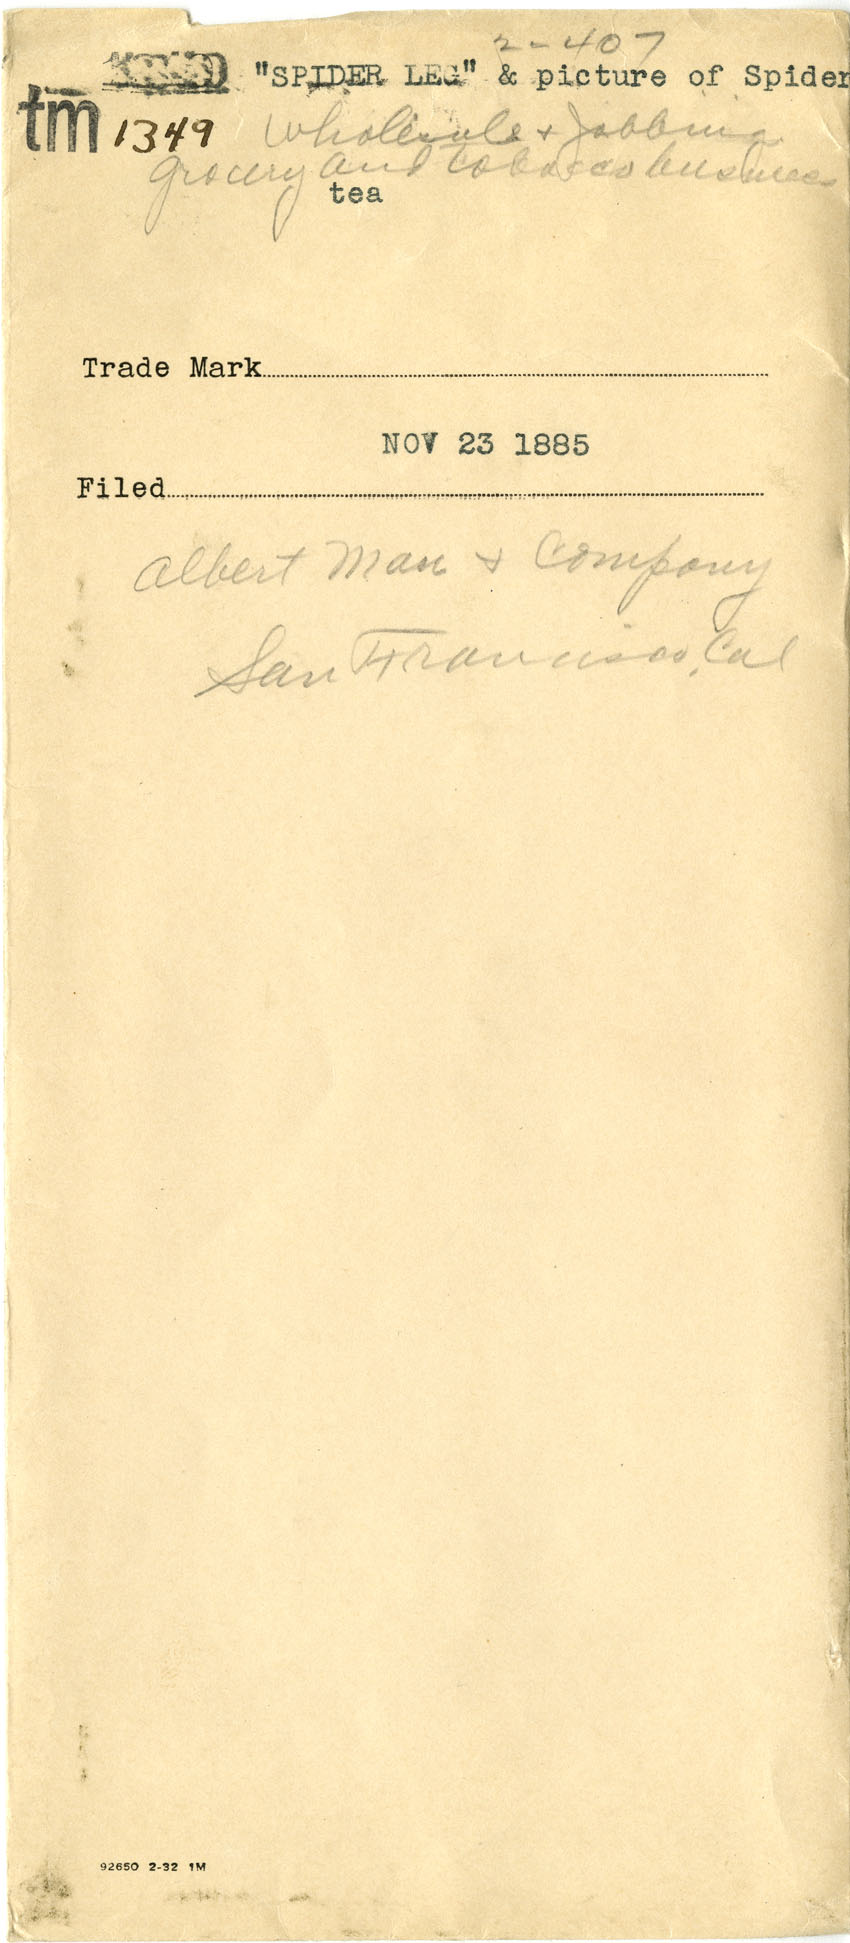 2-407
"SPIDER LEG" & picture of Spider
tm 1349 Wholesale & Jobbing
grocery and tobacco business
tea
Trade Mark
NOV 23 1885
Filed
Albert Mau & Company
San Francisco, Cal
92650 2-32 1M